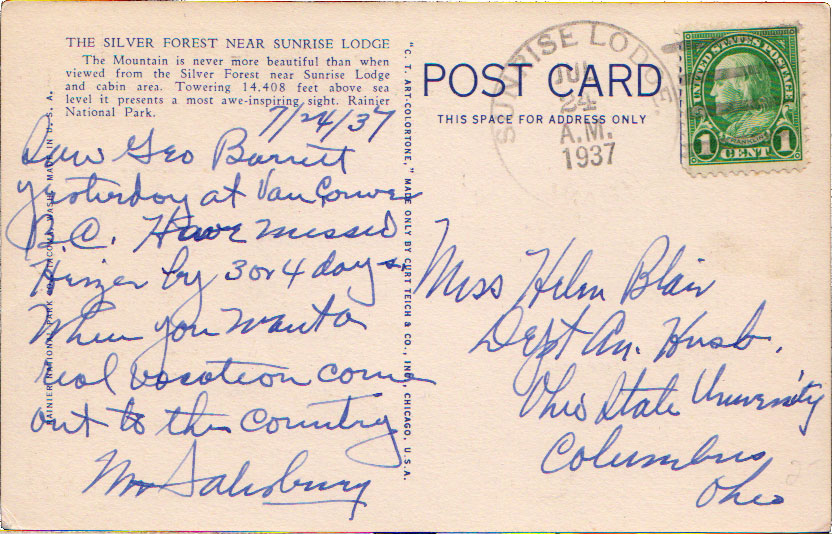 THE SILVER FOREST NEAR SUNRISE LODGE
The Mountain is never more beautiful than when
viewed from the Silver Forest near Sunrise Lodge
and cabin area. Towering 14,408 feet above sea
level it presents a most awe-inspiring sight. Rainier
National Park.
7/24/37
Saw Geo Barrett
yesterday at Van Couver
B.C. Have missed
by 3 or 4 days.
When you want a
real vacation come
out to this Country
Salisbury
RAINIER NATIONAL PARK CO., TACOMA, WASH. MADE IN U. S. A.
"C. T. ART-COLORTONE," MADE ONLY BY CURT TEICH & CO., INC., CHICAGO, U.S.A.
POST CARD
THIS SPACE FOR ADDRESS ONLY
SUNRISE LODGE
JUL
24
A.M.
1937
UNITED STATES POSTAGE
FRANKLIN
1 CENT 1
Miss Helen Blair
Dept An. Husb.
Ohio State University
Columbus
Ohio